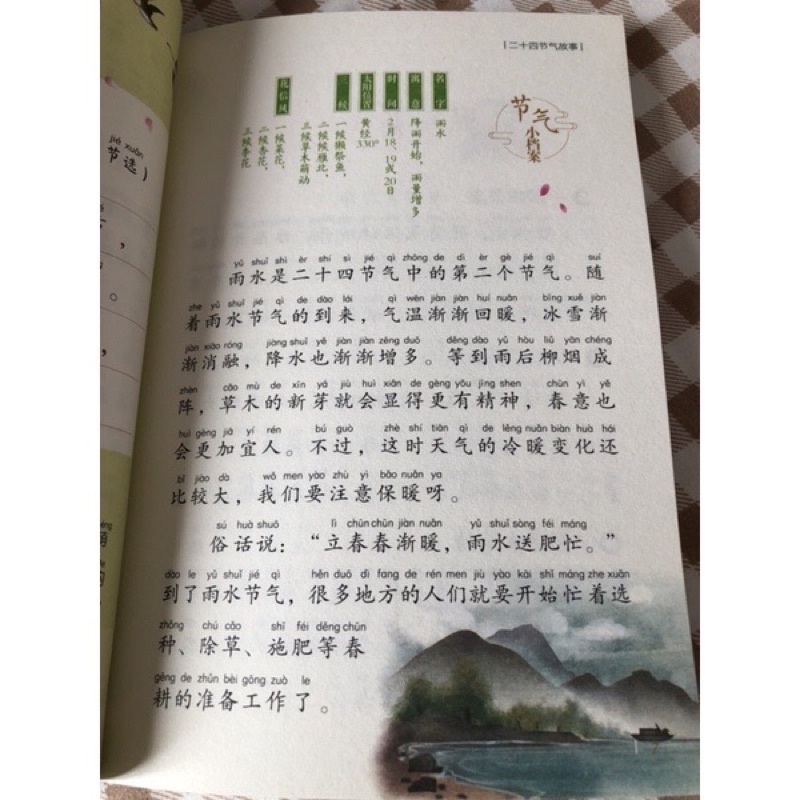 | 二十四节气故事 |
节气
小档案
名字 雨水
寓意 降雨开始，雨量增多
时间 2月18、19或20日
太阳位置 黄经330°
三候 一候獭祭鱼，
二候候雁北，
三候草木萌动
花信风 一候菜花，
二候杏花，
三候李花
yǔ shuǐ shì èr shí sì jié qì zhōng de dì èr gè jié qì suí
雨水是二十四节气中的第二个节气。随
zhe yǔ shuǐ jié qì de dào lái qì wēn jiàn jiàn huí nuǎn bīng xuě jiàn
着雨水节气的到来，气温渐渐回暖，冰雪渐
jiàn xiāo róng jiàng shuǐ yě jiàn jiàn zēng duō děng dào yǔ hòu liǔ yān chéng
渐消融，降水也渐渐增多。等到雨后柳烟成
zhèn cǎo mù de xīn yá jiù huì xiǎn de gèng yǒu jīng shen chūn yì yě
阵，草木的新芽就会显得更有精神，春意也
huì gèng jiā yí rén bú guò zhè shí tiān qì de lěng nuǎn biàn huà hái
会更加宜人。不过，这时天气的冷暖变化还
bǐ jiào dà wǒ men yào zhù yì bǎo nuǎn ya
比较大，我们要注意保暖呀。
sú huà shuō lì chūn chūn jiàn nuǎn yǔ shuǐ sòng féi máng
俗话说：“立春春渐暖，雨水送肥忙。”
dào le yǔ shuǐ jié qì hěn duō dì fang de rén men jiù yào kāi shǐ máng zhe xuǎn
到了雨水节气，很多地方的人们就要开始忙着选
zhǒng chú cǎo shī féi děng chūn
种、除草、施肥等春
gēng de zhǔn bèi gōng zuò le
耕的准备工作了。
jié xuǎn
节选）